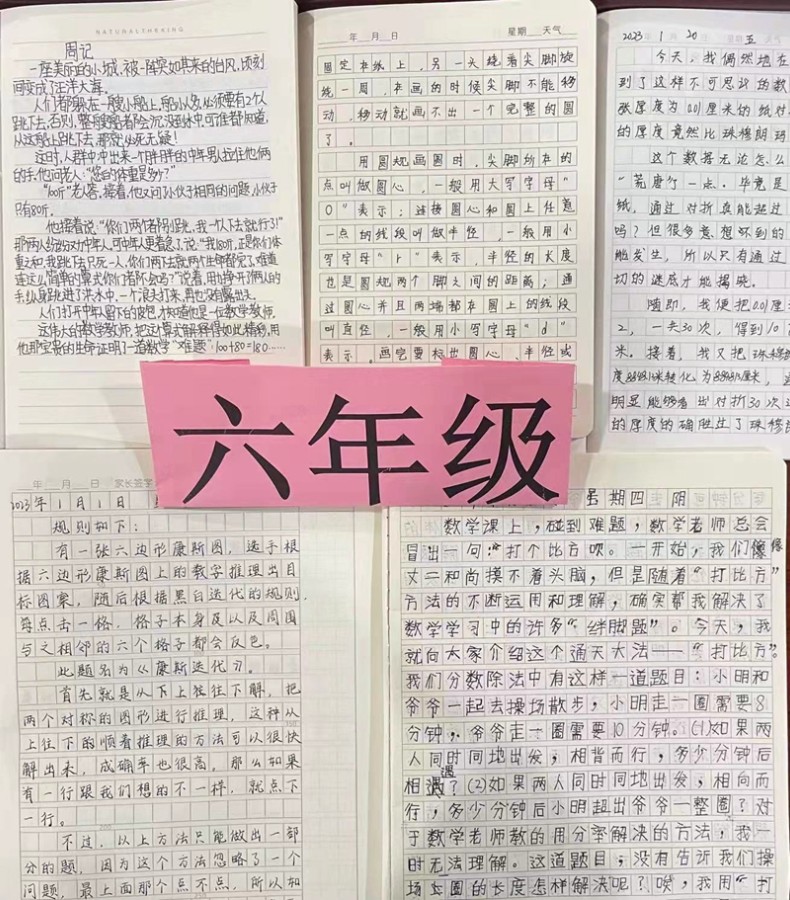 NATURALTHINKING
周记
一座美丽的小城，被一阵突如其来的台风，顷刻
间变成了汪洋大海。
人们都躲在一艘小船上，船小人多，必须要有2个人
跳下去，否则，整艘船者会沉没到水中，可谁都知道，
从这船上跳下去，那定必死无疑！
这时，人群中冲出来一个胖胖的中年男人拉住他俩
的手，他问老人："您的体重是多少？"
"100斤"老人答，接着，他又问小伙子相同的问题，小伙子
只有80斤。
他接着说："你们两个者别跳，我一个人下去就行了！"
们打开中年留下的皮包，才知道他是一位数学教师。
用他那宝贵的生命证明了一道数学"难题"：100+80=180……
年 月 日 星期 天气
固定在纸上，另一头绕着尖脚旋
绕一周，在画的时候尖脚不能移
动，移动就画不出一个完整的圆
了。
用圆规画圆时，尖脚所在的
点叫做圆心，一般用大写字母"
O"表示；连接圆心和圆上任意
一点的线段叫做半径，一般用小
写字母"r"表示，半径的长度
也是圆规两个脚之间的距离；通
过圆心并且两端都在圆上的线段
叫直径，一般用小写字母"d"
表示。画完要标出圆心、半径或
2023 1 月 20 五
今天，我偶然地在
到了这样不可思议的数
张厚度为0.01厘米的纸对
的厚度竟然比珠穆朗玛
这个数据无论怎么
荒唐了一点。毕竟是
纸，通过对折真能超过
吗？但很多意想不到的
触发生，所以只有通过
切的谜底才能揭晓。
随即，我便把0.01厘
2，一共30次，得到10
米。接着，我又把珠穆
明显能够看出对折30次
的厚度的确胜过了珠穆
六年级
年 月 日 家长签字
2023年1月1日
规则如下：
有一张六边形康斯图，选手根
据六边形康斯图上的数字推理出目
标图案，随后根据黑白迭代的规则，
每点击一格，格子本身及以及周围
与之相邻的六个格子都会反色。
此题名为《康斯迭代》。
首先就是从下上往往下解，把
两个对称的图形进行推理，这种从
上往下的顺着推理的方法可以很快
解出来，成确率也很高，那么如果
有一行跟我们想的不一样，就点下
一行。
不过，以上方法只能做出一部
分的题，因为这个方法忽略了一个
问题，最上面那个点不点，所以如
星期四 阴
数学课上，碰到难题，数学老师总会
冒出一句："打个比方呗。一开始，我们像
丈二和尚摸不着头脑，但是随着"打比方"
方法的不断运用和理解，确实帮我解决了
数学学习中的许多"绊脚题"。今天，我
就向大家介绍这个通天大法——"打比方"。
我们分数除法中有这样一道题目：小明和
爷爷一起去操场散步，小明走一圈需要8
分钟，爷爷走一圈需要10分钟。(1)如果两
人同时同地出发，相背而行，多少分钟后
相遇？(2)如果两人同时同地出发，相向而
行，多少分钟后小明超出爷爷一整圈？对
于数学老师教的用分率解决的方法，我一
时无法理解。这道题目，没有告诉我们操
场圈的长度怎样解决呢？唉，我用"打